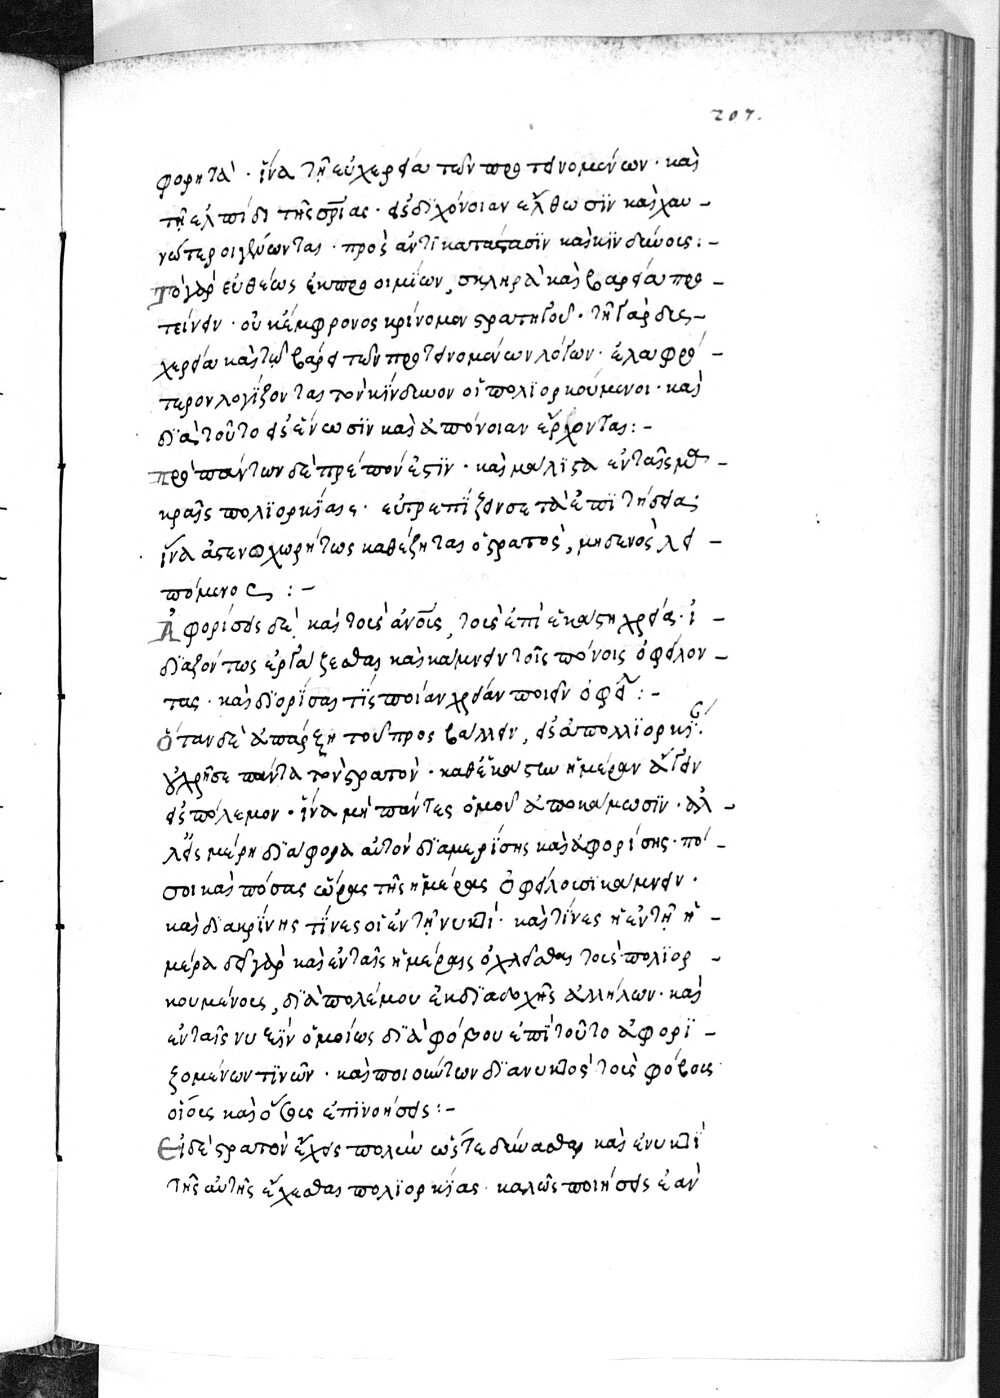 207.
φορητά· ἵνα τῇ εὐχερεία τῶν προτεινομένων· καὶ
τῇ ἐλπίδι τῆς σρίας· εἰς διχόνοιαν ἔλθωσϊν καὶ χαυ-
νώτεροι γένωνται· πρὸς ἀντικατάστασϊν καὶ κϊνδύνοις:-
Τὸ γὰρ εὐθέως ἐκ προοιμίων, σκληρὰ καὶ βαρεία προ-
τείνειν· οὐκ ἔμφρονος κρίνομεν στρατηγοῦ· τῇ γὰρ δυς-
χερεία καὶ τῷ βάρει τῶν προτεινομένων λόγων· ἐλαφρό-
τερον λογίζονται τὸν κΐνδυνον οἱ πολϊορκούμενοι· καὶ
διὰ τοῦτο εἰς ἕνωσϊν καὶ ἀπόνοιαν ἔρχονται:-
Πρὸ πάντων δὲ πρέπον ἐστϊν· καὶ μάλϊστα ἐν ταῖς μα-
κραῖς πολϊορκΐαις· εὐτρεπΐζειν σε τὰ ἐπϊτήδεια·
ἵνα ἀστενοχωρήτως καθέζηται ὁ στρατὸς, μηδενὸς λει-
πόμενος:-
Ἀφορίσεις δὲ καὶ τοῖς ἀνοις, τοῖς ἐπὶ ἑκάστη χρεία· ἰ-
διαζόντως ἐργάζεσθαι καὶ κάμνειν τοῖς πόνοις ὀφείλον-
τας· καὶ διορΐσαι τΐς ποίαν χρείαν ποιεῖν ὀφείλει:-
Ὅταν δὲ ἀπάρξη τοῦ προσβάλλειν, εἰς ἀπολλϊορκΐας·
οὐ χρή σε πάντα τὸν στρατὸν· καθ' ἑκάστην ἡμέραν ἄγειν
εἰς πόλεμον· ἵνα μὴ πάντες ὁμοῦ ἀποκάμωσϊν· ἀλ-
λ' εἰς μέρη διάφορα αὐτὸν διαμερΐσης καὶ ἀφορίσης· πό-
σοι καὶ πόσας ὥρας τῆς ἡμέρας ὀφείλουσϊ κάμνειν·
καὶ διακρΐνης τΐνες οἱ ἐν τῇ νυκτί· καὶ τΐνες ἡ ἐν τῇ ἡ-
μέρα δεῖ γὰρ καὶ ἐν ταῖς ἡμέραις ὀχλεῖσθαι τοὺς πολϊορ-
κουμένους, διὰ πολέμου ἐκ διαδοχῆς ἀλλήλων· καὶ
ἐν ταῖς νυξϊν ὁμοίως διὰ φόβου ἐπὶ τοῦτο ἀφορϊ-
ζομένων τϊνῶν· καὶ ποιούντων διὰ νυκτὸς τοὺς φόβους
οἵους καὶ ὅσους ἐπϊνοήσεις:-
Εἰ δὲ στρατὸν ἔχεις πολὺν ὥστε δύνασθαι καὶ ἐν νυκτΐ
τῆς αὐτῆς ἔχεσθαι πολϊορκίας· καλῶς ποιήσεις ἐὰν